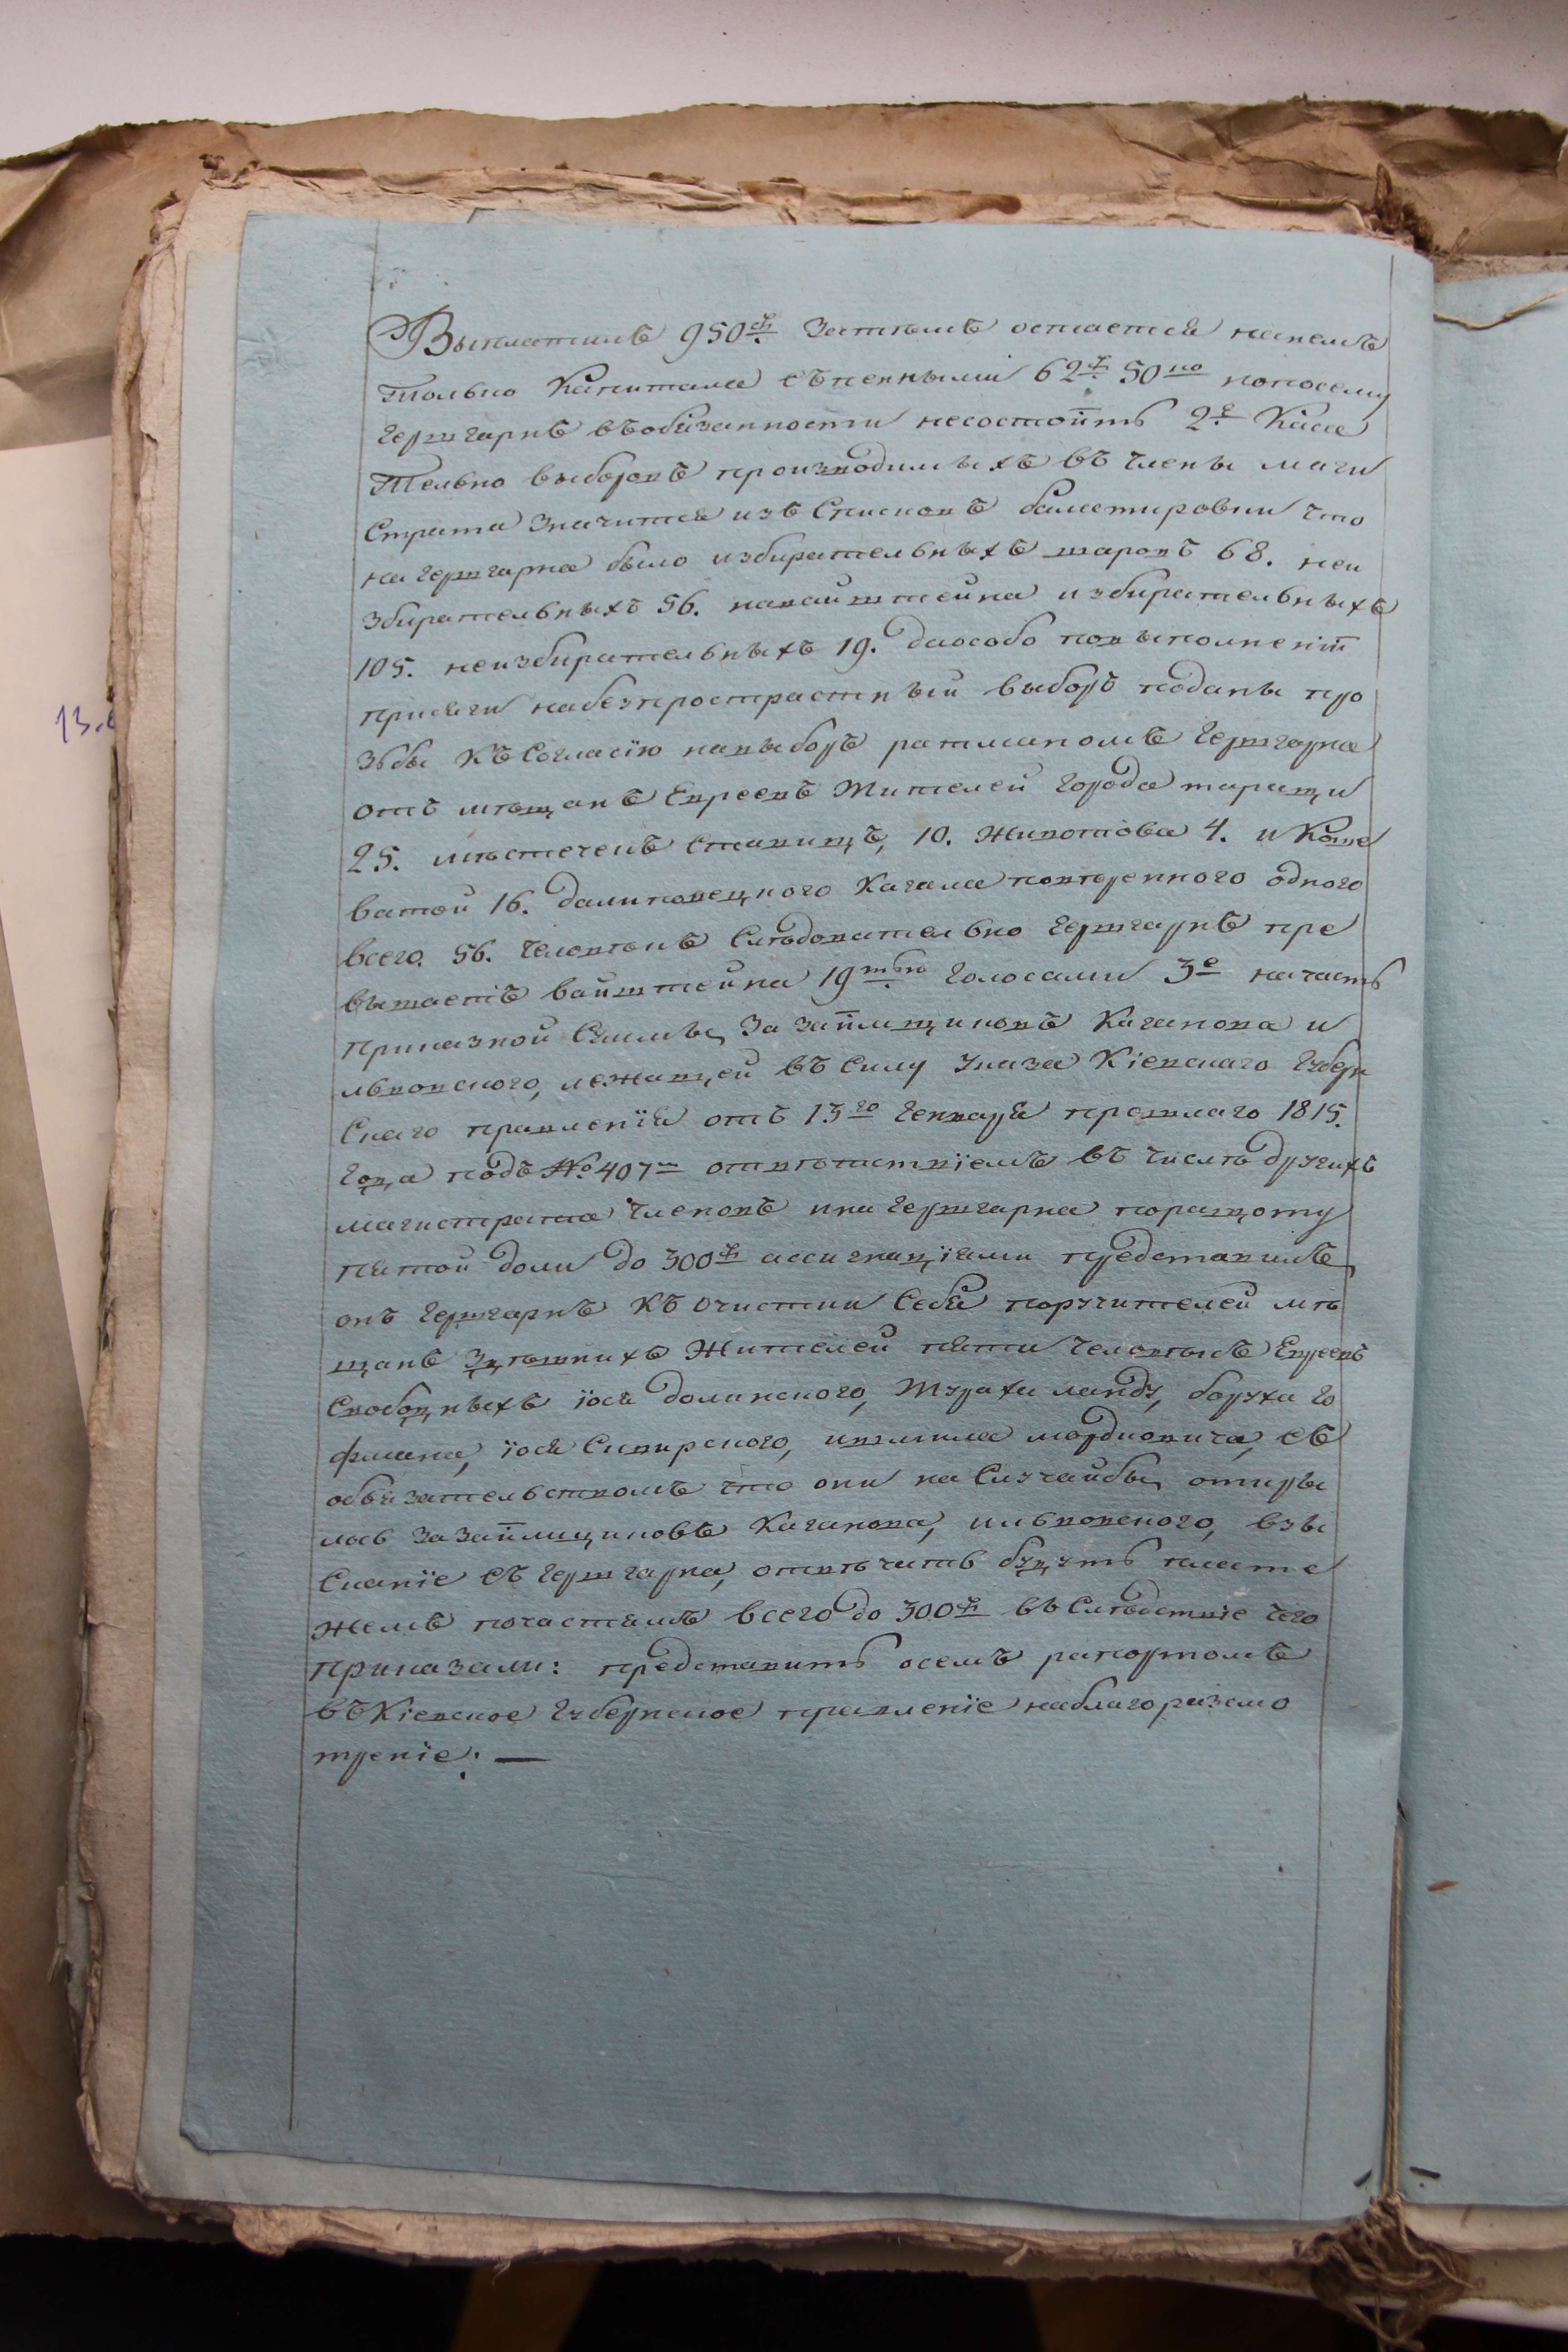 Выплатилъ 950 ру. Затемъ остается на немъ
только Капитала съ пенными 62 р. 50 ко по по сему
Гершгарнъ въ обязанности не состоитъ 2е Каса
тельно выборовъ производимыхъ въ члены маги
страта значится изъ Списковъ балотировки что
на Гершгарна было избирательныхъ шаровъ 68. неи
збирательныхъ 56. на вайштейна избирательныхъ
105. неизбирательныхъ 19. да особо по выполненіи
присяги на безпрострастный выборъ поданы про
зьбы къ Согласію на выборъ ратманомъ Гершгарна
отъ мѣщанъ Евреевъ Жителей города таращи
25. мѣстечекъ Ставищъ, 10. Животова 4. и Коше
ватой 16. да липовецкого Кагала повѣренного одного
всего. 56. Человѣкъ Слѣдовательно Гершгарнъ пре
вышаетъ вайштейна 19тью Голосами 3е на часть
приказной Суммы, За заимщиковъ Каганова и
львовского, лежащей въ Силу Указа Кіевскаго Губерн
Скаго правленія отъ 13го Генваря прошлаго 1815.
Года подъ №407м отвѣтствіемъ въ числѣ другихъ
магистрата Членовъ и на Гершгарна по ращоту
пятой доли до 300 ру ассигнаціями представилъ
онъ Гершгарнъ къ очистки Себя поручителей мѣ
щанъ Здѣшнихъ Жителей пяти Человѣкъ Евреевъ
Свободныхъ іося долинского, Мураха ланду, боруха го
фмана, іося Сквирского, и шлиома мордковича, съ
обязательствомъ что они на Случай бы, открыlось за заимщиковъ Каганова, и львовского, взы
Сканіе съ Гершгарна, отвѣчать будутъ плате
жемъ по частямъ всего до 300 ру въ Слѣдствіе чего
приказали: представить о семъ рапортомъ
въ Кіевское Губернское правленіе на благоразсмо
треніе: —
13.